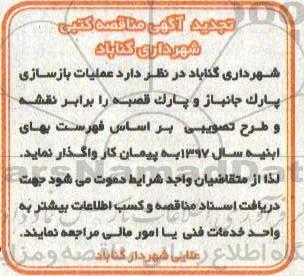 تجدید آگهی مناقصه کتبی
شهرداری گناباد
شهرداری گناباد در نظر دارد عملیات بازسازی
پارک جانباز و پارک قصبه را برابر نقشه
و طرح تصویبی بر اساس فهرست بهای
ابنیه سال ۱۳۹۷به پیمان کار واگذار نماید.
لذا از متقاضیان واجد شرایط دعوت می شود جهت
دریافت اسناد مناقصه و کسب اطلاعات بیشتر به
واحد خدمات فنی یا امور مالی مراجعه نمایند.
طلایی شهردار گناباد